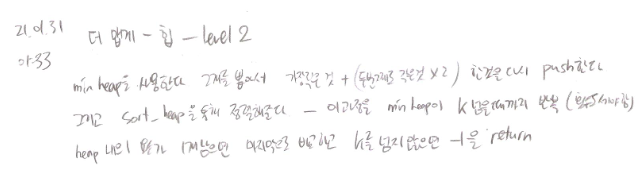 21.01.31 더 맵게 - 힙 - level 2
01:33
min heap을 사용한다 2개를 뽑아서 가장작은 것 + (두번째로 작은것 x 2) 한것을 다시 push한다
그리고 sort_heap을 통해 정렬해준다 - 이과정을 min heap이 K 넘을때까지 반복
heap 내의 원소가 1개남으면 마지막으로 비교하고 K를 넘지않으면 -1을 return